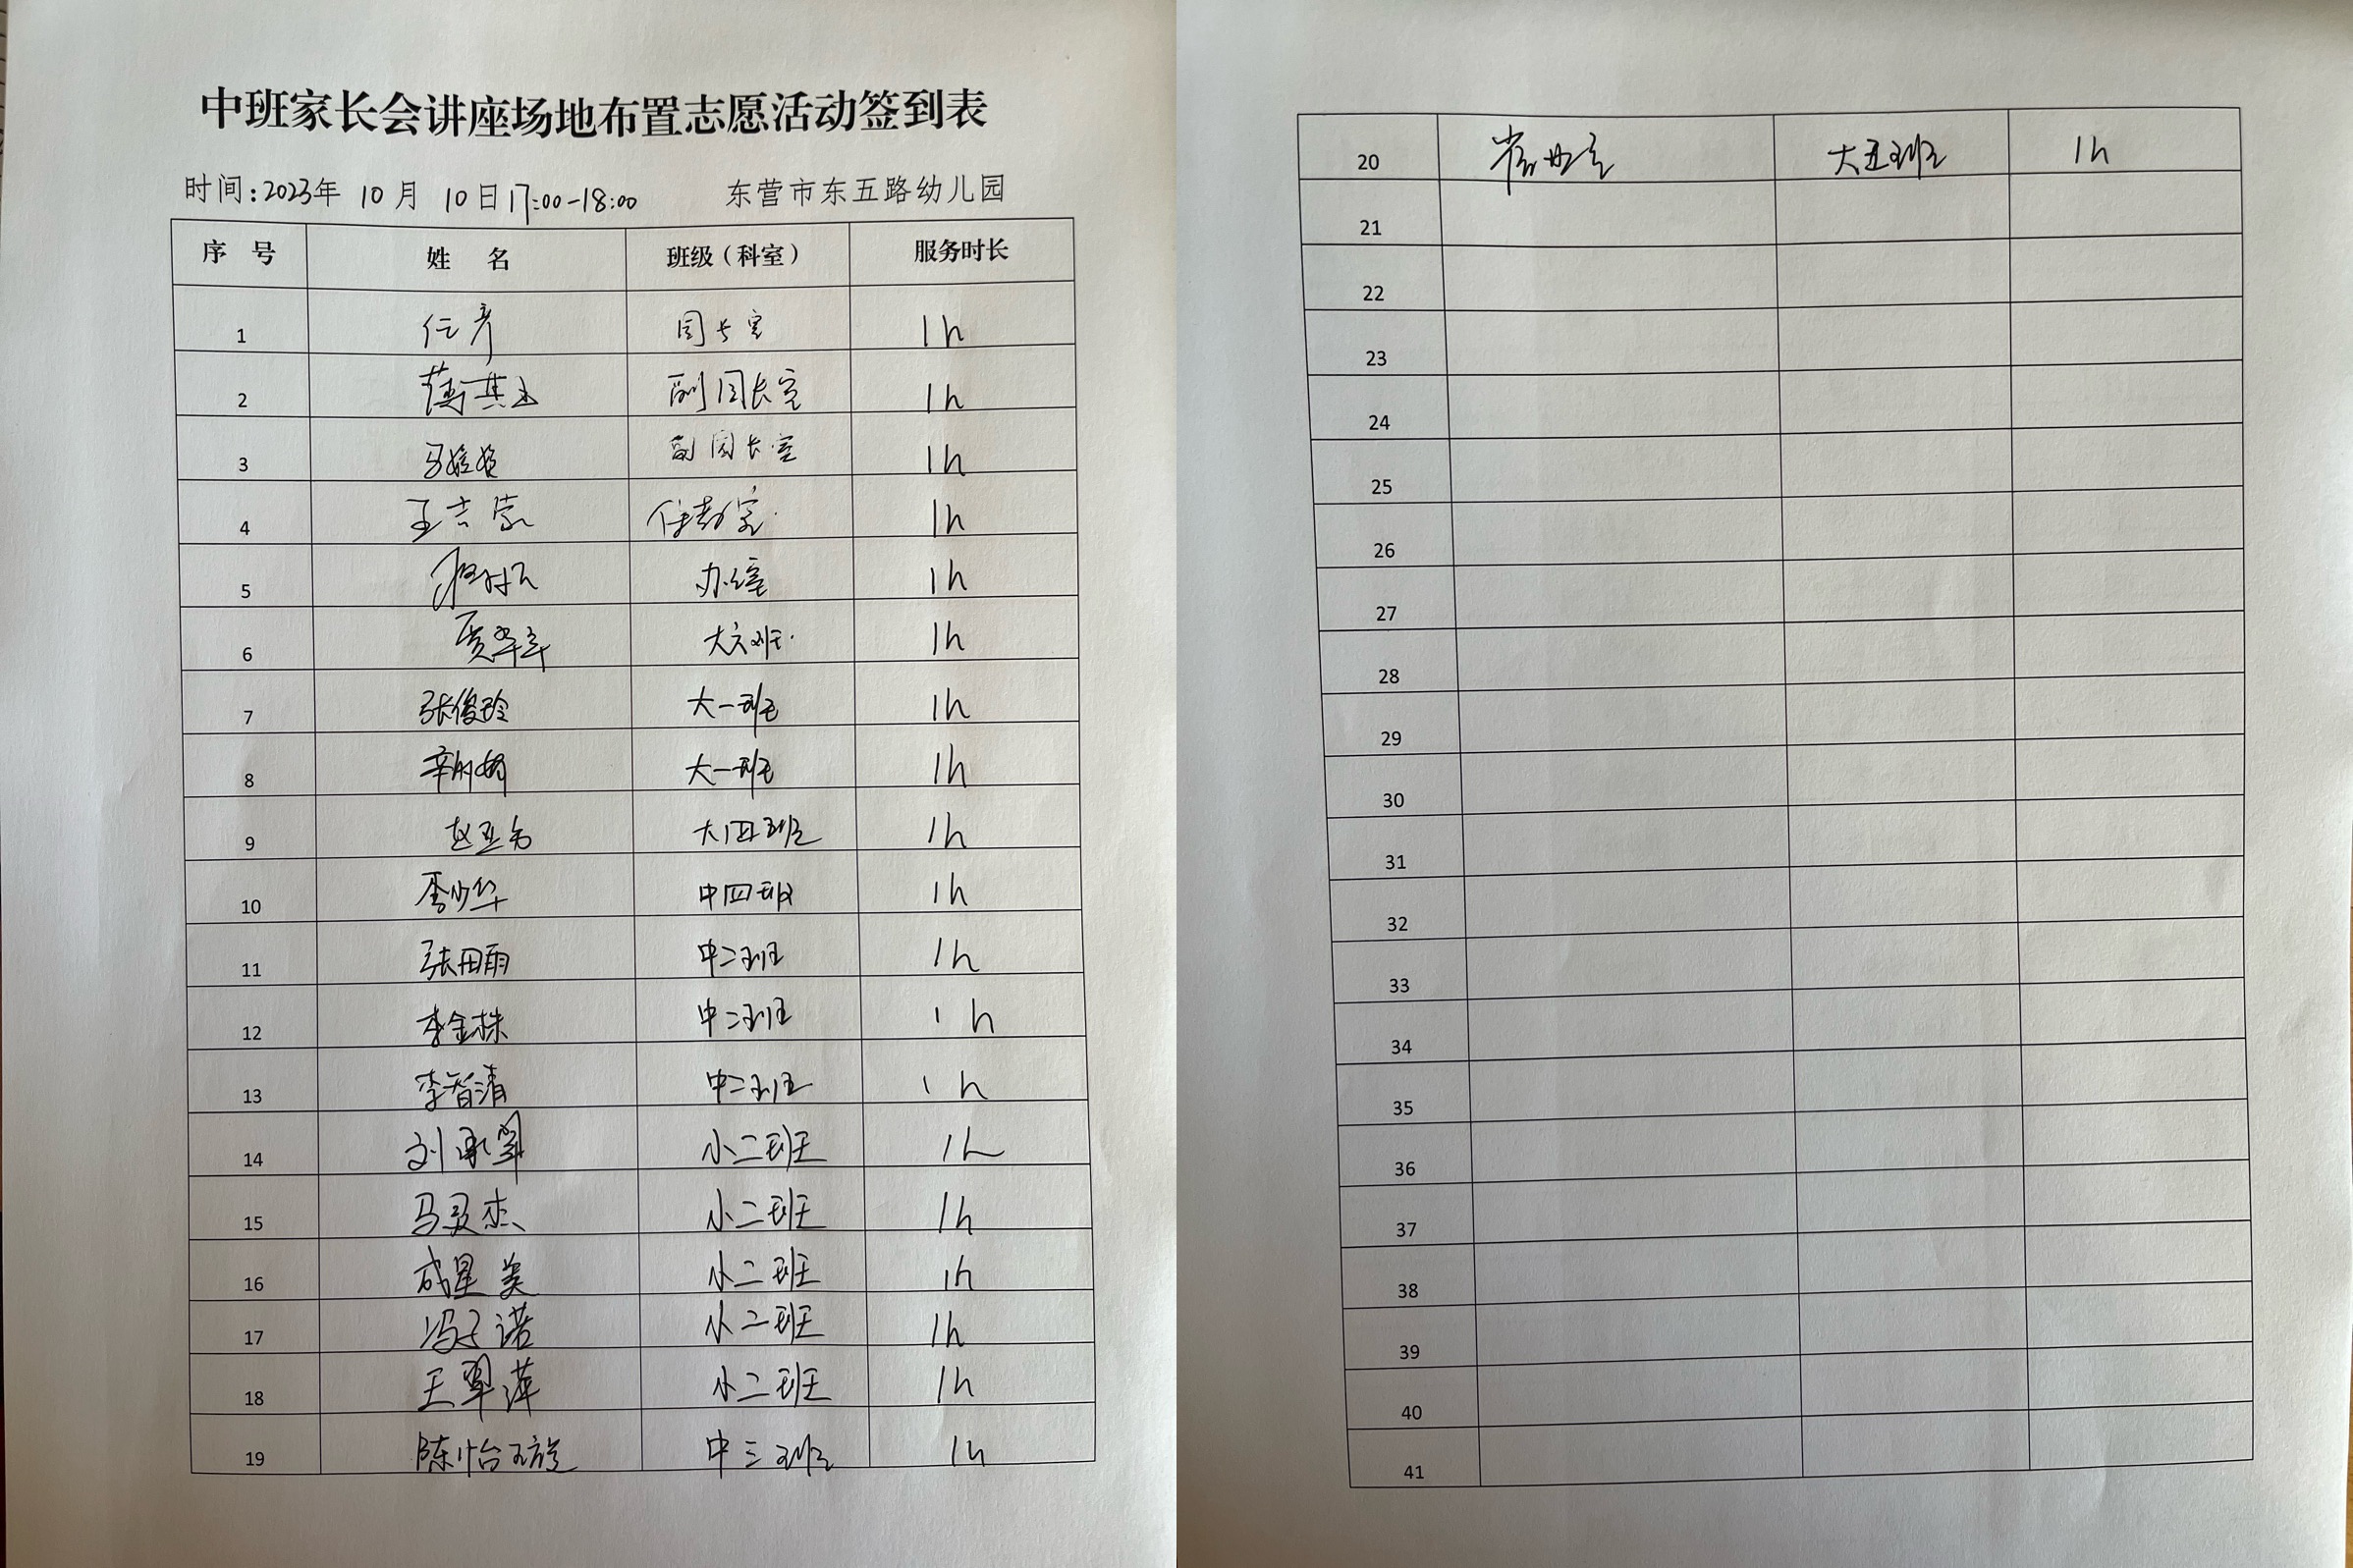 中班家长会讲座场地布置志愿活动签到表
时间:2023年 10月 10日17:00-18:00 东营市东五路幼儿园
序 号 姓 名 班级(科室) 服务时长
1 任彦 园长室 1h
2 副园长室 1h
3 马婷婷 副园长室 1h
4 王吉荣 保教室 1h
5 办公室 1h
6 大六班 1h
7 张俊玲 大一班 1h
8 大一班 1h
9 大四班 1h
10 李少华 中四班 1h
11 张田雨 中二班 1h
12 李金株 中二班 1h
13 李智清 中二班 1h
14 小二班 1h
15 马灵杰 小二班 1h
16 成星美 小二班 1h
17 冯子诺 小二班 1h
18 王翠萍 小二班 1h
19 陈怡璇 中三班 1h
20 大五班 1h
21
22
23
24
25
26
27
28
29
30
31
32
33
34
35
36
37
38
39
40
41